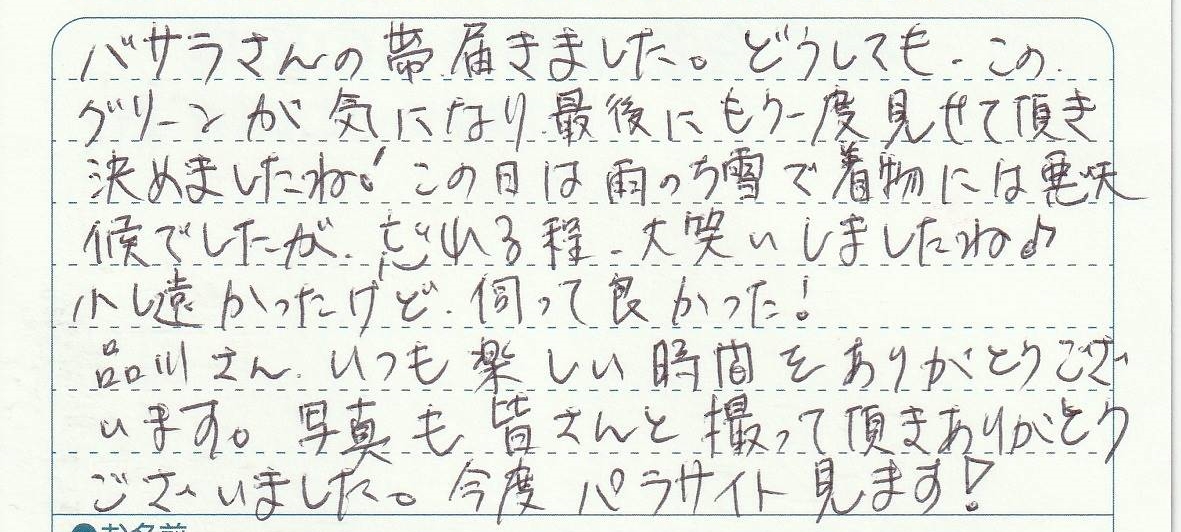 バサラさんの帯届きました。どうしても、この
グリーンが気になり最後にもう一度見せて頂き
決めましたね!この日は雨のち雪で着物には悪天
候でしたが、忘れる程、大笑いしましたね♪
少し遠かったけど、伺って良かった!
品川さん、いつも楽しい時間をありがとうござ
います。写真も皆さんと撮って頂きありがとう
ございました。今度パラサイト見ます!
●お名前